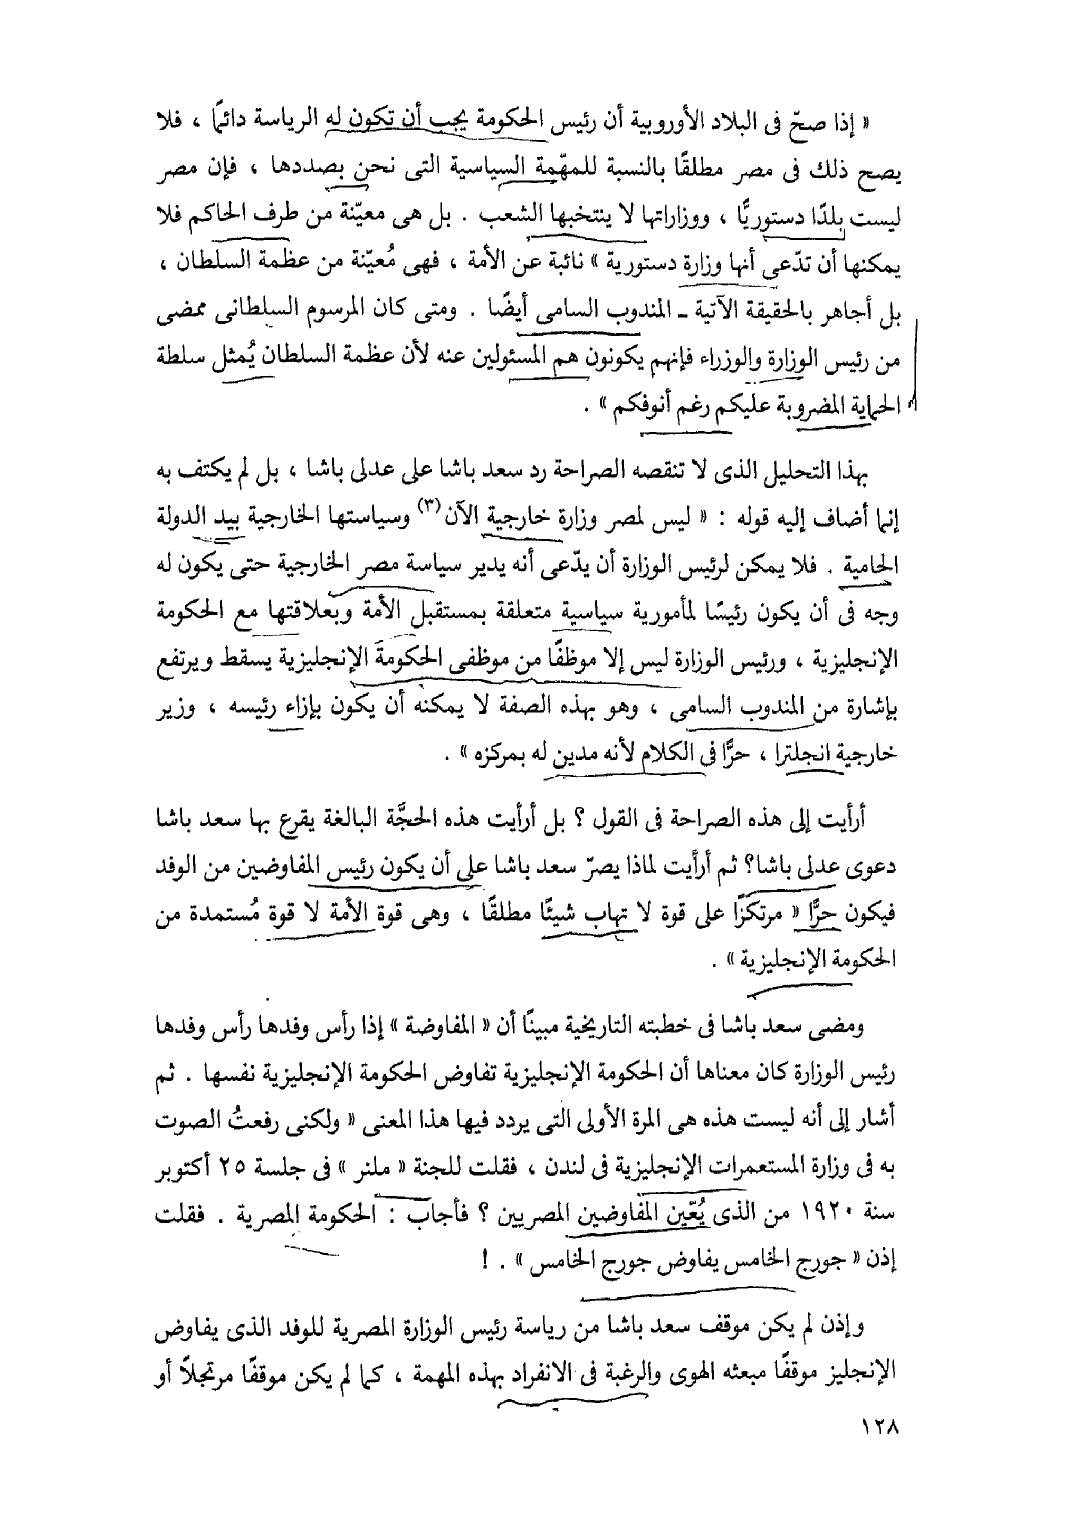 « إذا صحّ فى البلاد الأوروبية أن رئيس الحكومة يجب أن تكون له الرياسة دائمًا ، فلا
يصح ذلك فى مصر مطلقًا بالنسبة للمهّمة السياسية التى نحن بصددها ، فإن مصر
ليست بلدًا دستوريًّا ، ووزاراتها لا ينتخبها الشعب . بل هى معيّنة من طرف الحاكم فلا
يمكنها أن تدّعى أنها وزارة دستورية » نائبة عن الأمة ، فهى مُعيّنة من عظمة السلطان ،
بل أجاهر بالحقيقة الآتية ـ المندوب السامى أيضًا . ومتى كان المرسوم السلطانى ممضى
من رئيس الوزارة والوزراء فإنهم يكونون هم المسئولين عنه لأن عظمة السلطان يُمثل سلطة
الحماية المضروبة عليكم رغم أنوفكم » .
بهذا التحليل الذى لا تنقصه الصراحة رد سعد باشا على عدلى باشا ، بل لم يكتف به
إنما أضاف إليه قوله : « ليس لمصر وزارة خارجية الآن(٣) وسياستها الخارجية بيد الدولة
الحامية . فلا يمكن لرئيس الوزارة أن يدّعى أنه يدير سياسة مصر الخارجية حتى يكون له
وجه فى أن يكون رئيسًا لمأمورية سياسية متعلقة بمستقبل الأمة وبعلاقتها مع الحكومة
الإنجليزية ، ورئيس الوزارة ليس إلا موظفًا من موظفى الحكومة الإنجليزية يسقط ويرتفع
بإشارة من المندوب السامى ، وهو بهذه الصفة لا يمكنه أن يكون بإزاء رئيسه ، وزير
خارجية انجلترا ، حرًّا فى الكلام لأنه مدين له بمركزه » .
أرأيت إلى هذه الصراحة فى القول ؟ بل أرأيت هذه الحجَّة البالغة يقرع بها سعد باشا
دعوى عدلى باشا؟ ثم أرأيت لماذا يصرّ سعد باشا على أن يكون رئيس المفاوضين من الوفد
فيكون حرًّا « مرتكزًا على قوة لا تهاب شيئًا مطلقًا ، وهى قوة الأمة لا قوة مُستمدة من
الحكومة الإنجليزية » .
ومضى سعد باشا فى خطبته التاريخية مبينًا أن « المفاوضة » إذا رأس وفدها رأس وفدها
رئيس الوزارة كان معناها أن الحكومة الإنجليزية تفاوض الحكومة الإنجليزية نفسها . ثم
أشار إلى أنه ليست هذه هى المرة الأولى التى يردد فيها هذا المعنى « ولكنى رفعتُ الصوت
به فى وزارة المستعمرات الإنجليزية فى لندن ، فقلت للجنة « ملنر » فى جلسة ٢٥ أكتوبر
سنة ١٩٢٠ من الذى يُعّين المفاوضين المصريين ؟ فأجاب : الحكومة المصرية . فقلت
إذن « جورج الخامس يفاوض جورج الخامس » . !
وإذن لم يكن موقف سعد باشا من رياسة رئيس الوزارة المصرية للوفد الذى يفاوض
الإنجليز موقفًا مبعثه الهوى والرغبة فى الانفراد بهذه المهمة ، كما لم يكن موقفًا مرتجلاً أو
١٢٨